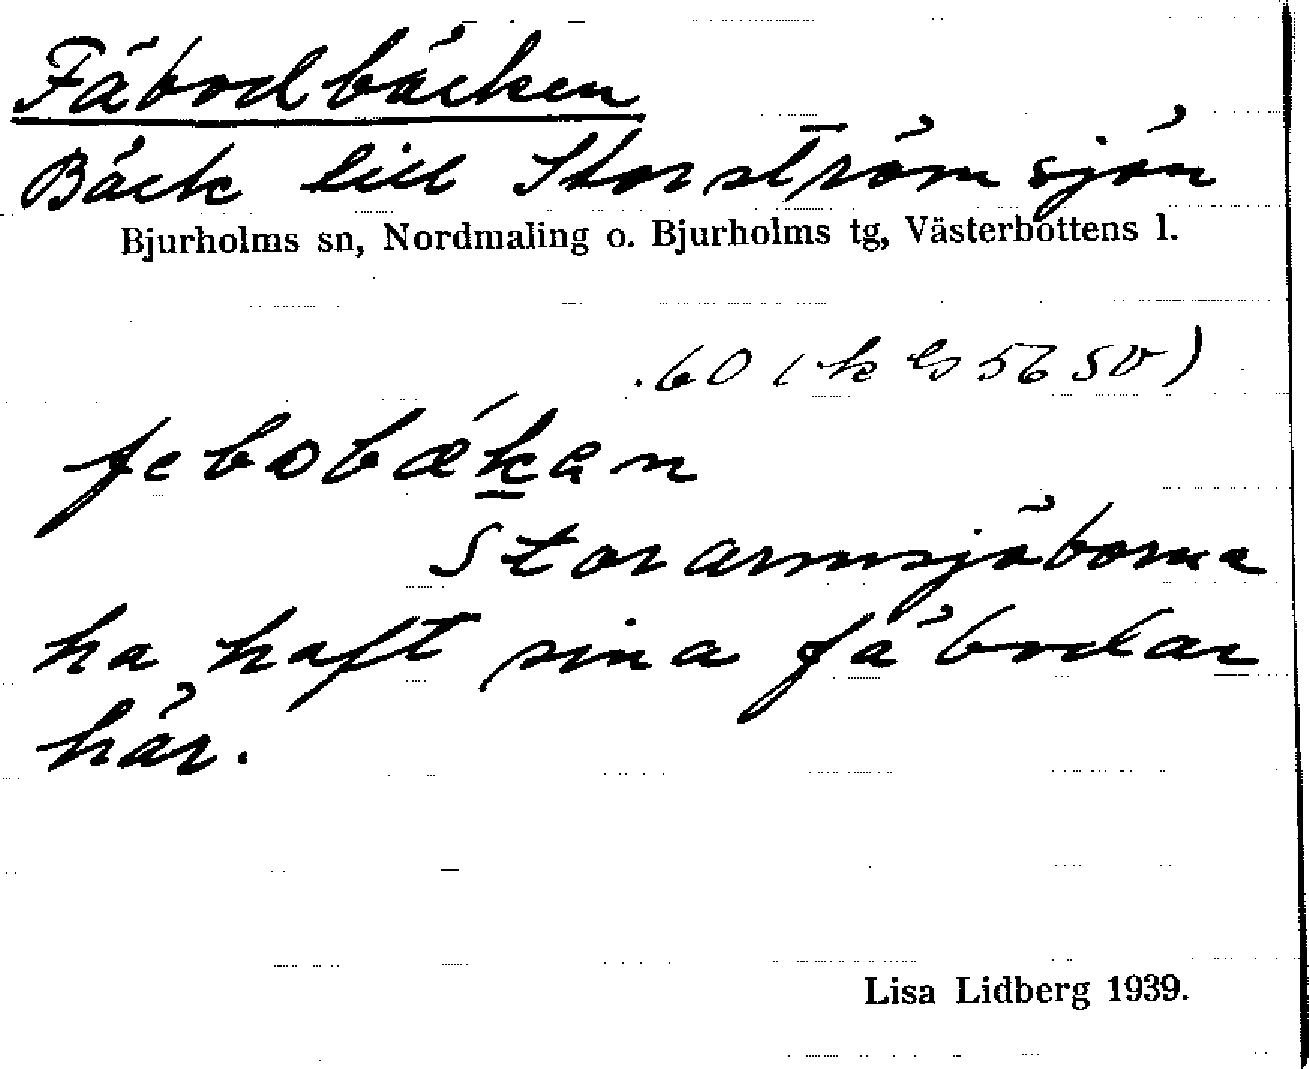 Fäbodbäcken
Bäck till Storströmsjön
Bjurholms sn, Nordmaling o. Bjurholms tg, Västerbottens l.
.60 (k b 56 SV)
febobækan
Storarmsjöborna
ha haft sina fäbodar
här.
Lisa Lidberg 1939.